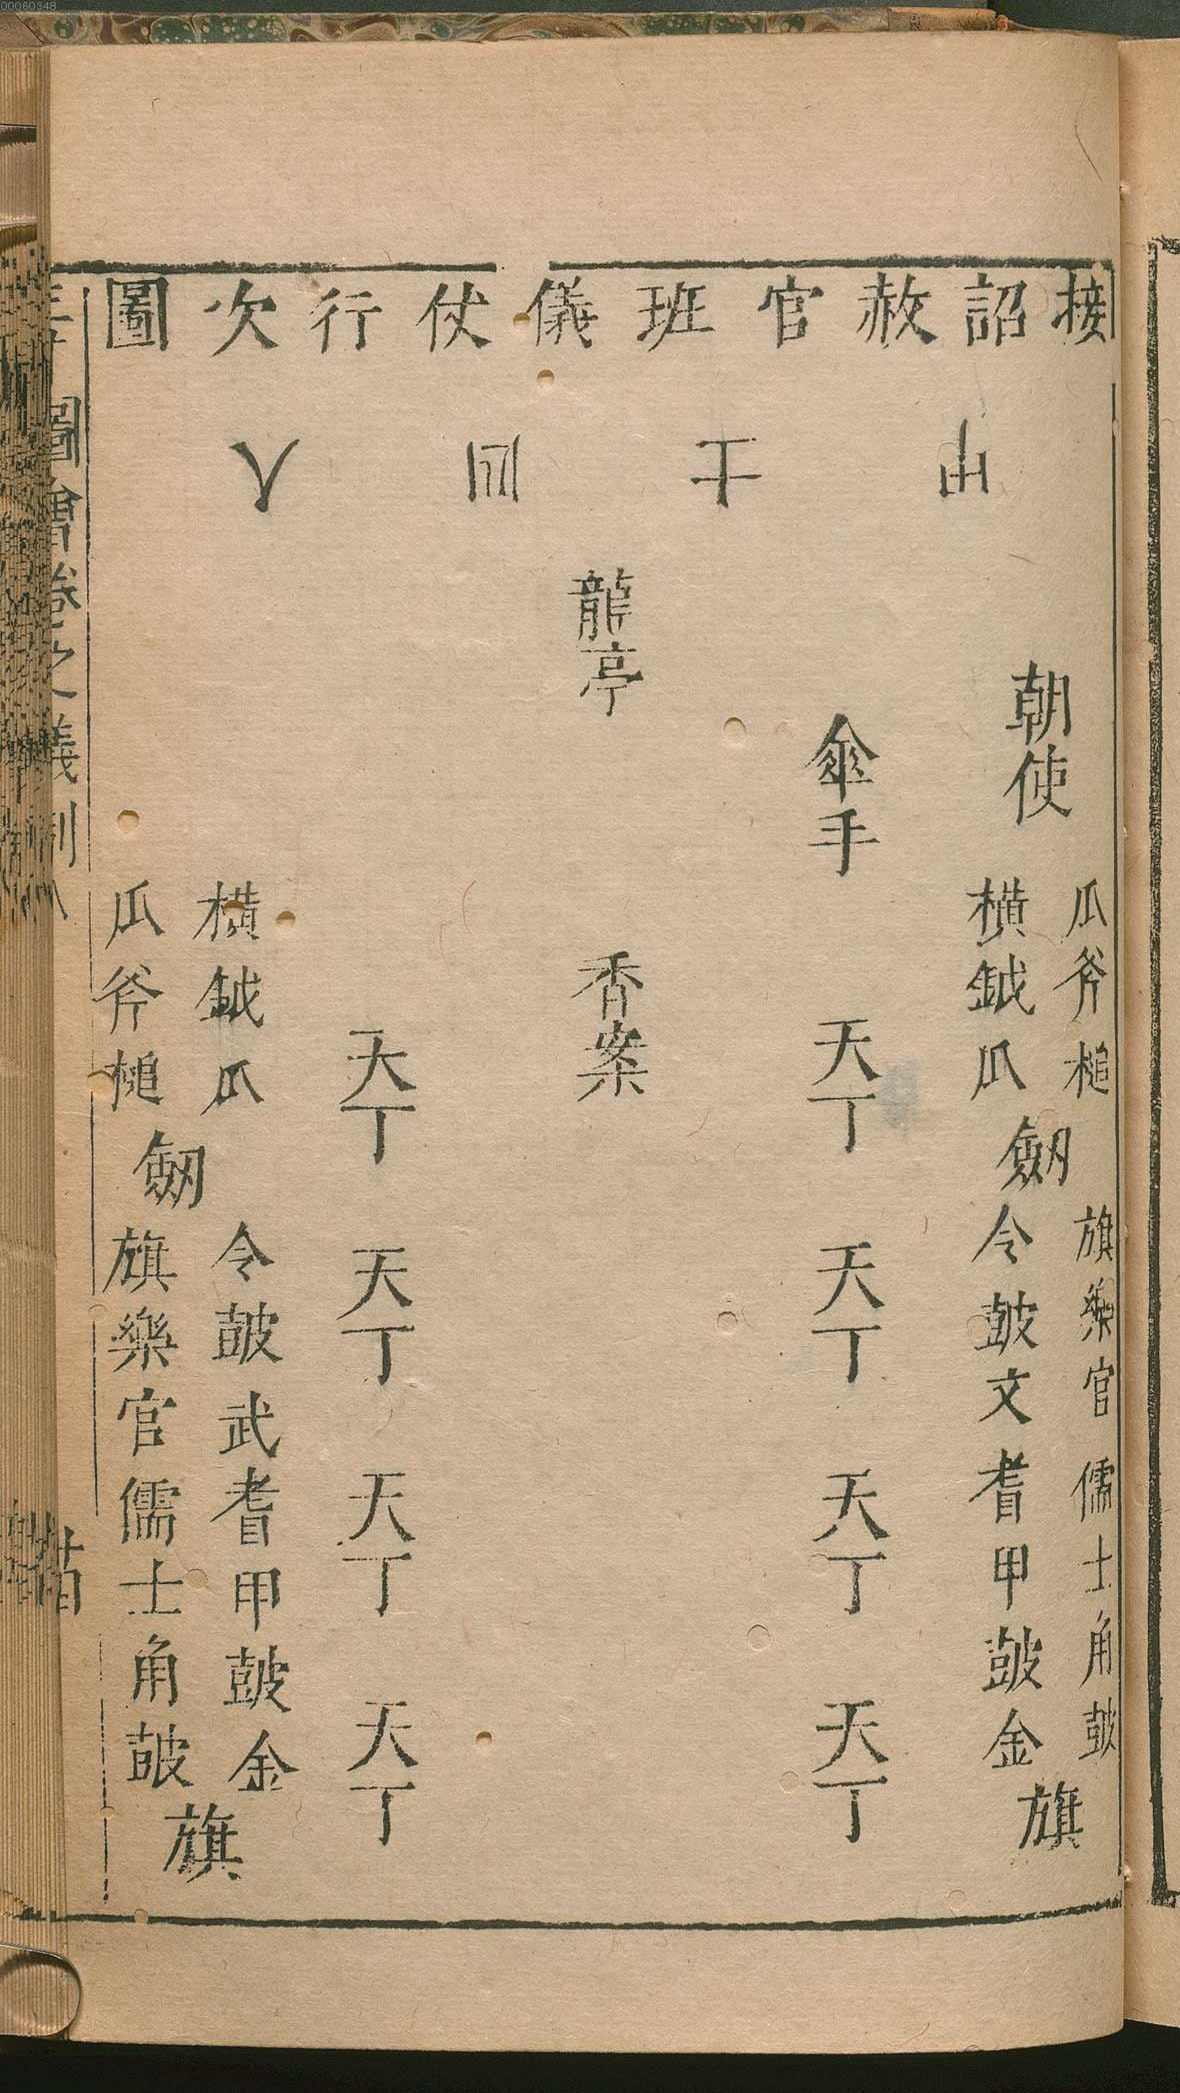 接詔赦官班儀仗行次圖
朝使
瓜斧槌
橫鉞瓜
劒
旗樂官儒士角皷
令皷文耆甲皷金
旗
傘手
天丁
天丁
天丁
天丁
龍亭
香案
天丁
天丁
天丁
天丁
橫鉞瓜
瓜斧槌
劒
令皷武耆甲皷金
旗樂官儒士角皷
旗
圖會卷之儀制八